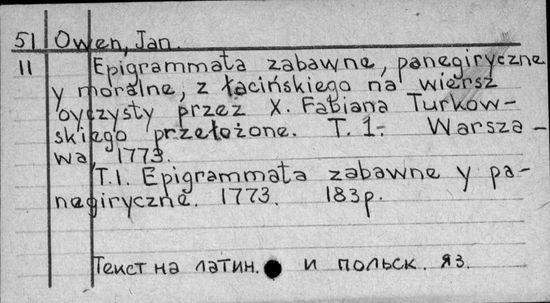 51 Owen, Jan.
11 Epigrammata zabawne, panegiryczne
y moralne, z łacińskiego na wiersz
oyczysty przez X. Fabiana Turkow-
skiego przełożone. T. 1- Warsza-
wa, 1773.
T.1. Epigrammata zabawne y pa-
negiryczne. 1773. 183p.
Текст на латин. и польск. яз.